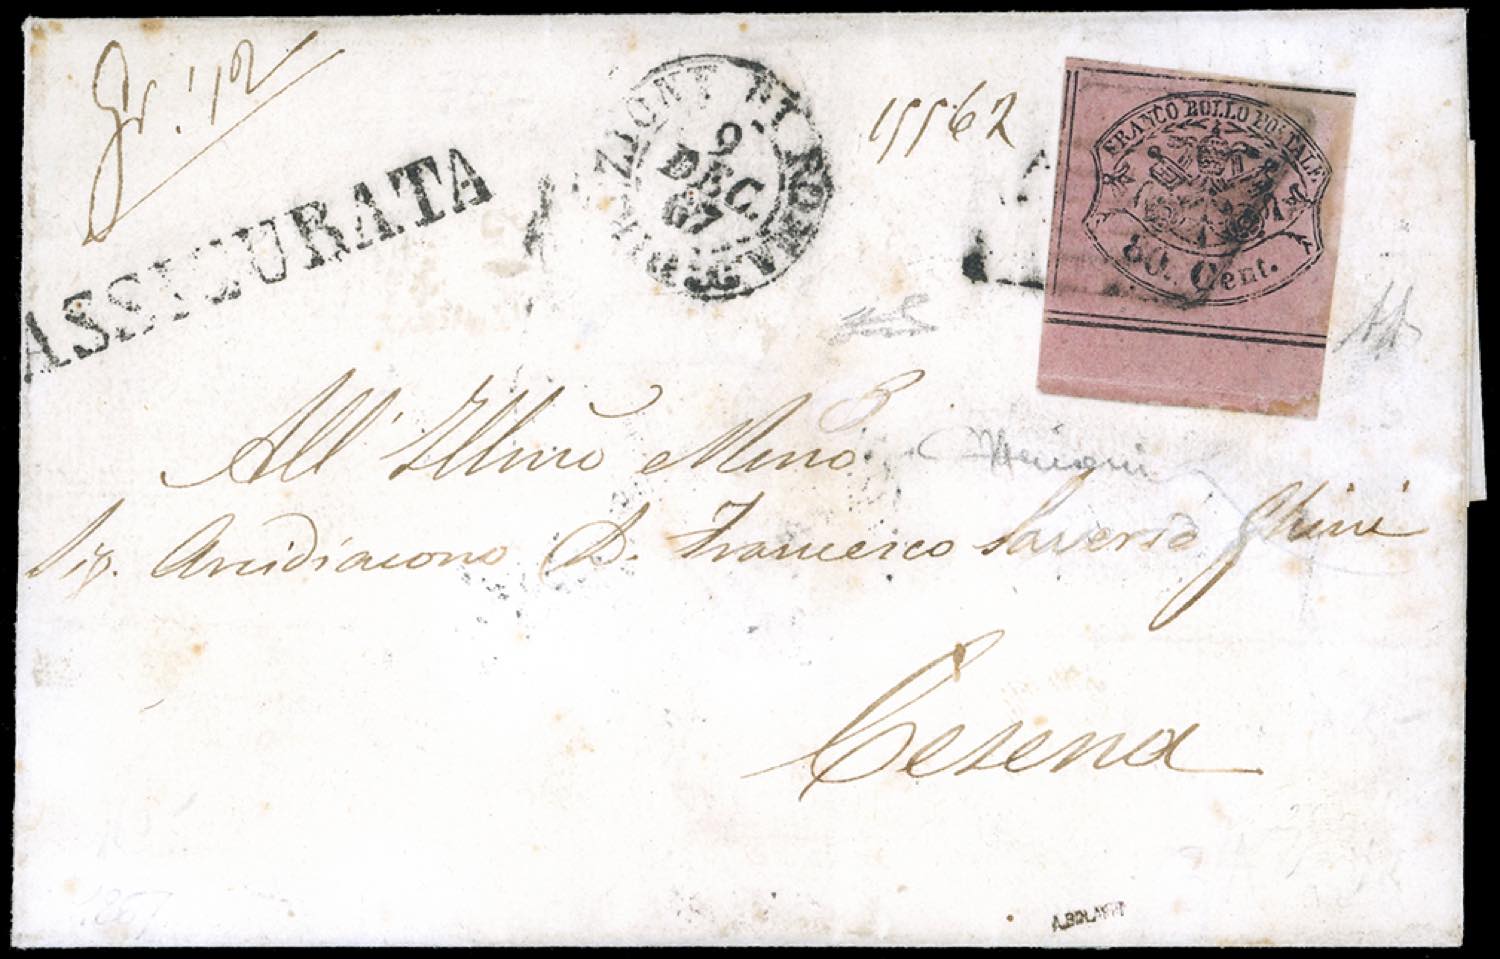 Gr. 12
ASSICURATA
DIREZIONE DI ROMA
9
DEC.
67
15562
FRANCO BOLLO POSTALE
80. Cent.
All' Illmo Mmo
Sig. Arcidiacono D. Francesco Saverio Ghini
Cesena
A.BOLAFFI